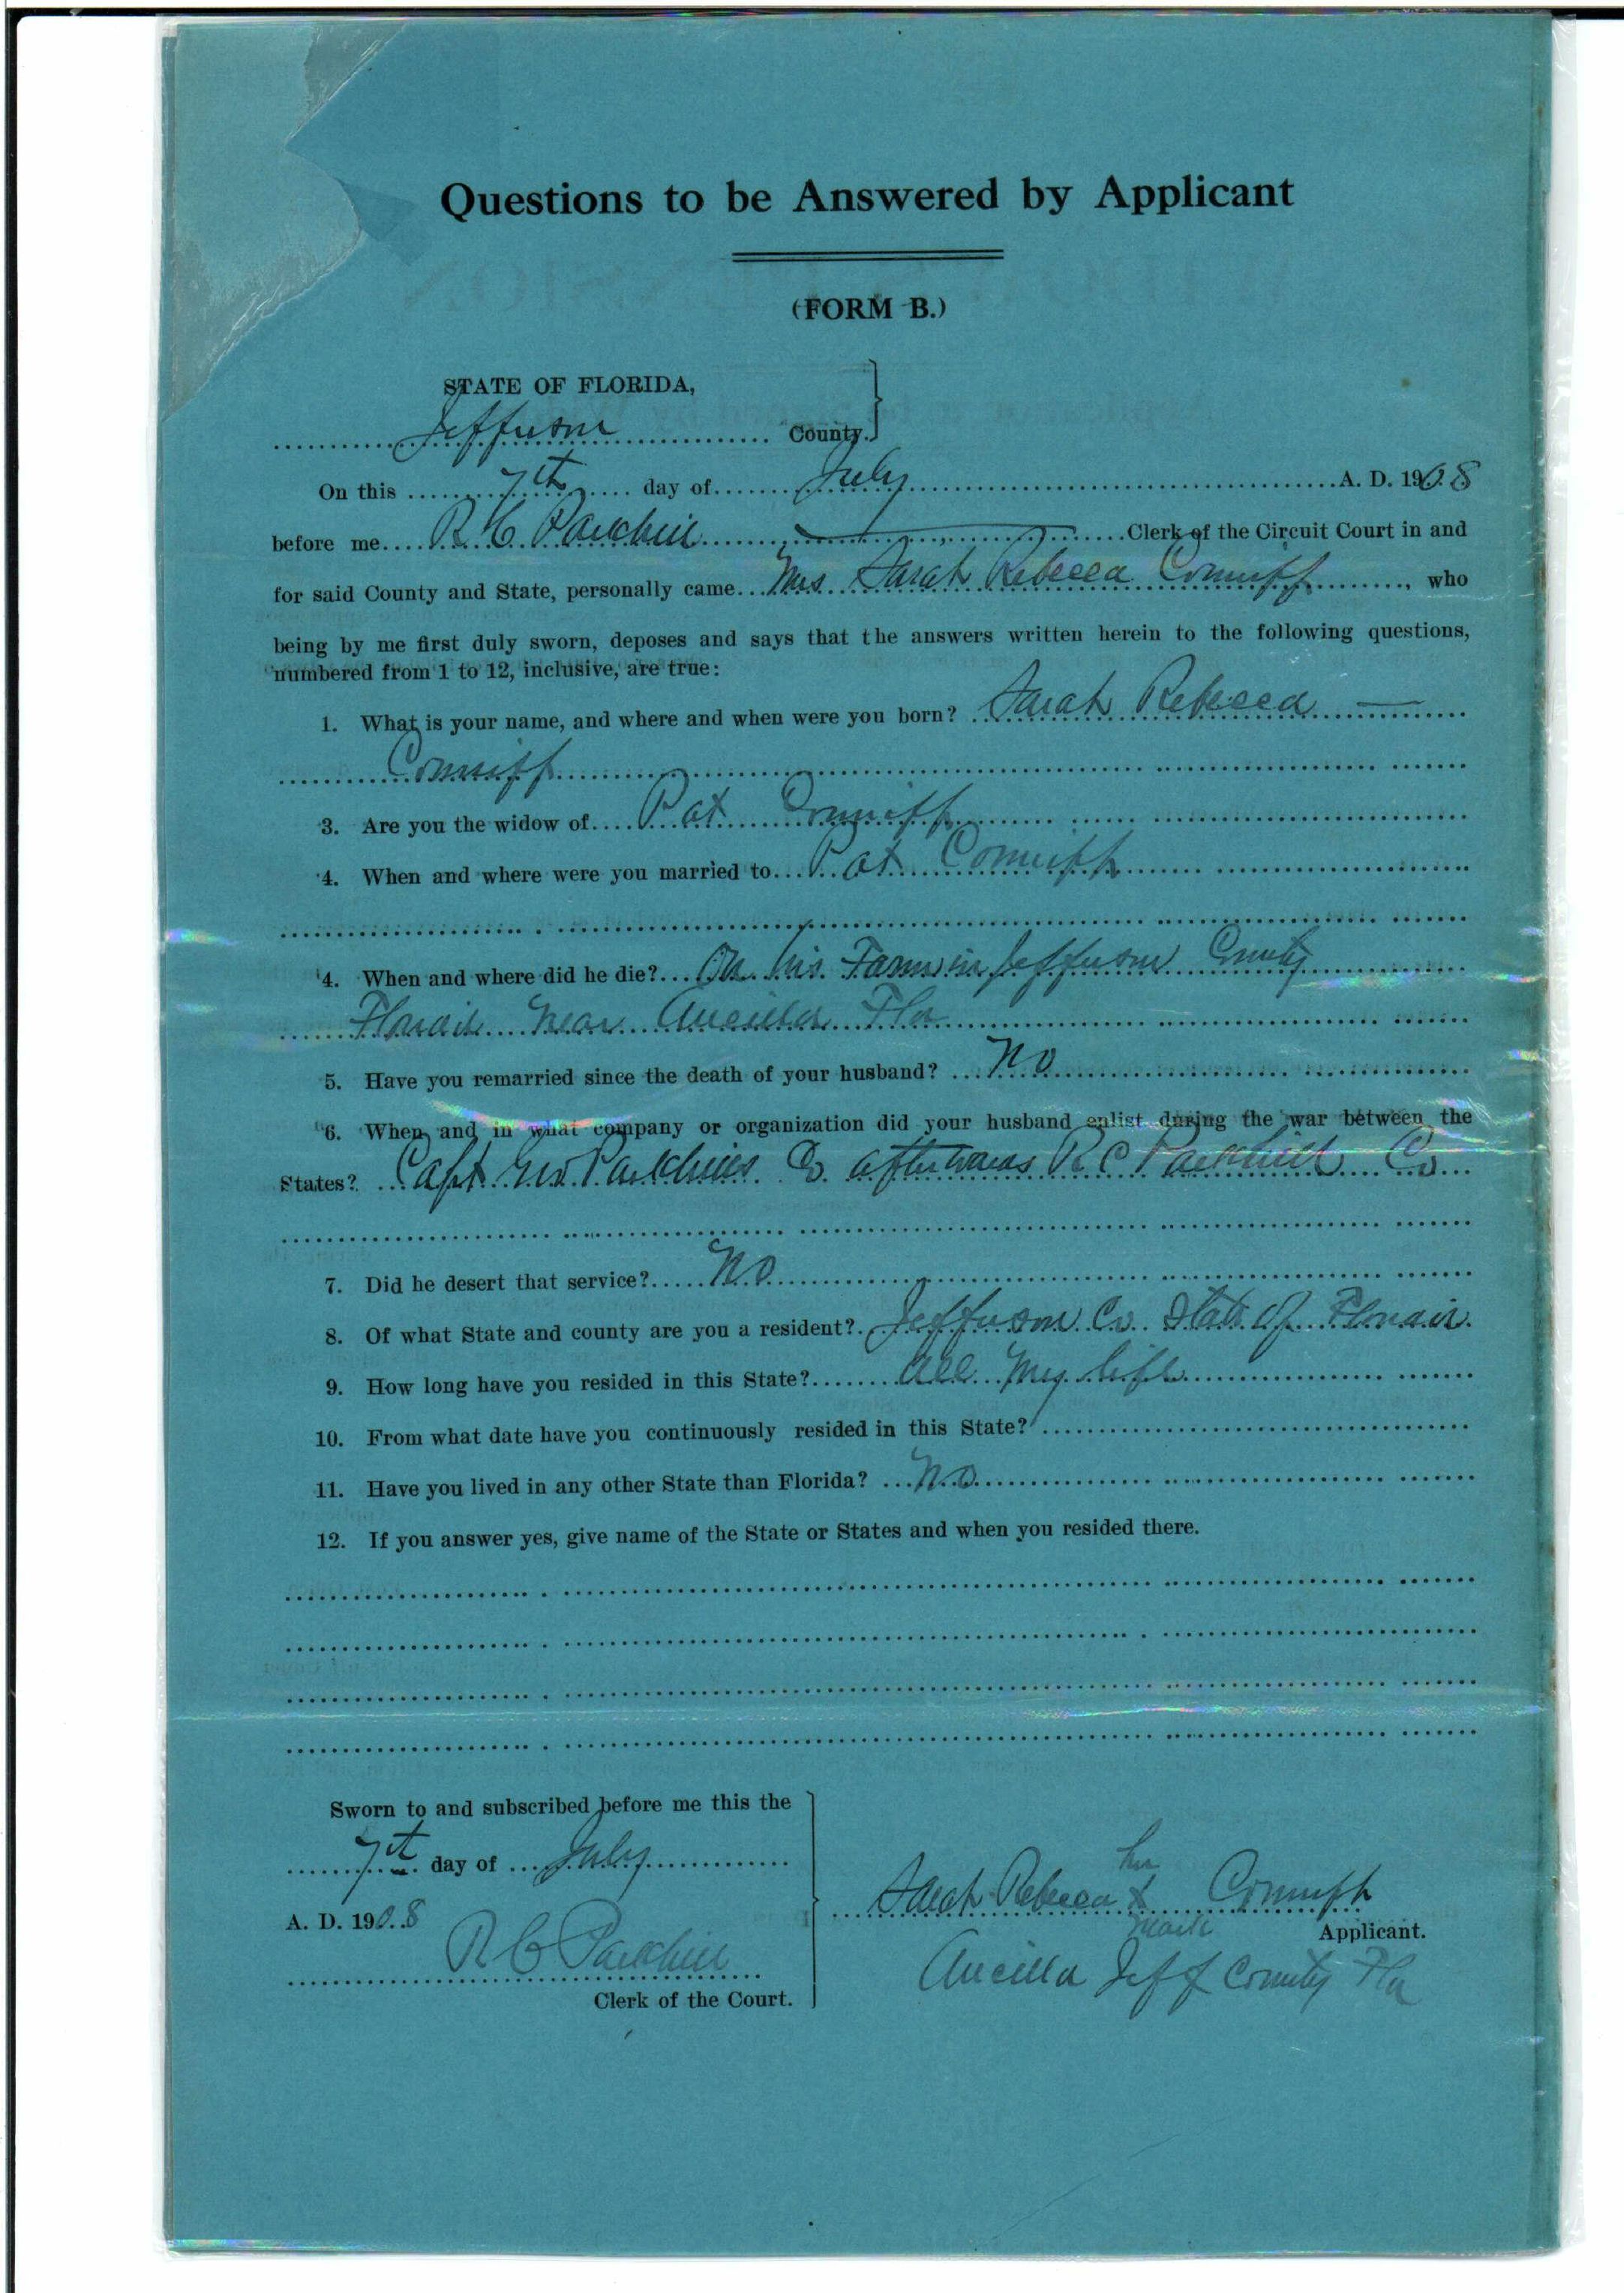 Questions to be Answered by Applicant
(FORM B.)
STATE OF FLORIDA,
Jefferson County.
On this 7th day of July A. D. 1908
before me R C Parkhill Clerk of the Circuit Court in and
for said County and State, personally came Mrs Sarah Rebecca Conniff, who
being by me first duly sworn, deposes and says that the answers written herein to the following questions,
numbered from 1 to 12, inclusive, are true:
1. What is your name, and where and when were you born? Sarah Rebecca
Conniff
3. Are you the widow of Pat Conniff
4. When and where were you married to Pat Conniff
4. When and where did he die? On his Farm in Jefferson County
Florida near Aucilla Fla
5. Have you remarried since the death of your husband? No
6. When and in what company or organization did your husband enlist during the war between the
States? Capt Parkhills Co afterwards R C Parkhill Co
7. Did he desert that service? No
8. Of what State and county are you a resident? Jefferson Co State of Florida
9. How long have you resided in this State? All my life
10. From what date have you continuously resided in this State?
11. Have you lived in any other State than Florida? No
12. If you answer yes, give name of the State or States and when you resided there.
Sworn to and subscribed before me this the
7th day of July
A. D. 1908
R C Parkhill
Clerk of the Court.
her
Sarah Rebecca X Conniff
mark
Applicant.
Aucilla Jeff County Fla